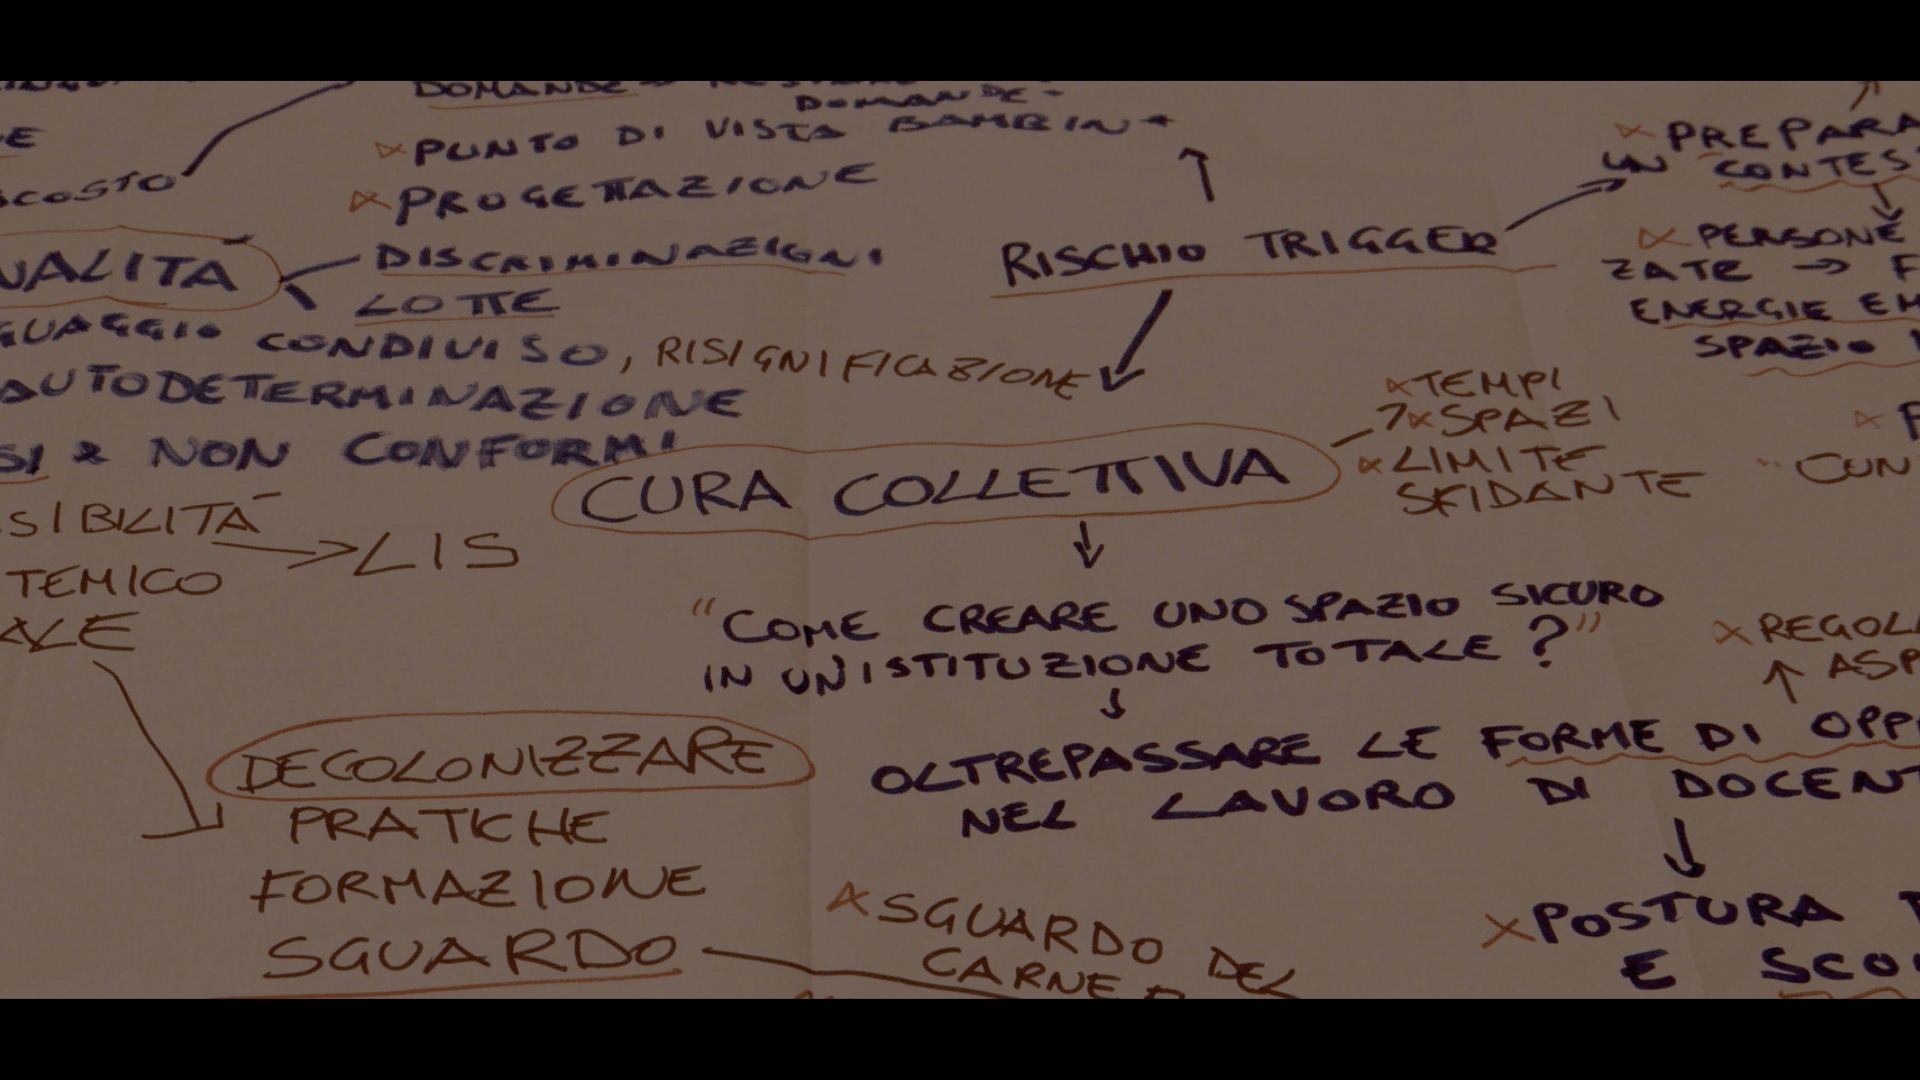 DOMANDE
DOMANDE-
* PUNTO DI VISTA BAMBIN*
* PROGETTAZIONE
SCOSTO
UALITÀ
DISCRIMINAZIONI
LOTTE
GUAGGIO CONDIVISO, RISIGNIFICAZIONE
AUTODETERMINAZIONE
SI & NON CONFORMI
SIBILITÀ
→ LIS
TEMICO
ALE
DECOLONIZZARE
PRATICHE
FORMAZIONE
SGUARDO
RISCHIO TRIGGER
CURA COLLETTIVA
* TEMPI
* SPAZI
* LIMITE
SFIDANTE
"COME CREARE UNO SPAZIO SICURO
IN UN'ISTITUZIONE TOTALE?"
OLTREPASSARE LE FORME DI OPP
NEL LAVORO DI DOCENT
* SGUARDO DEL
CARNE
* PREPARA
UN CONTES
* PERSONE
ZATE → F
ENERGIE EM
SPAZIO
"CON
* REGOLA
ASP
* POSTURA
E SCO